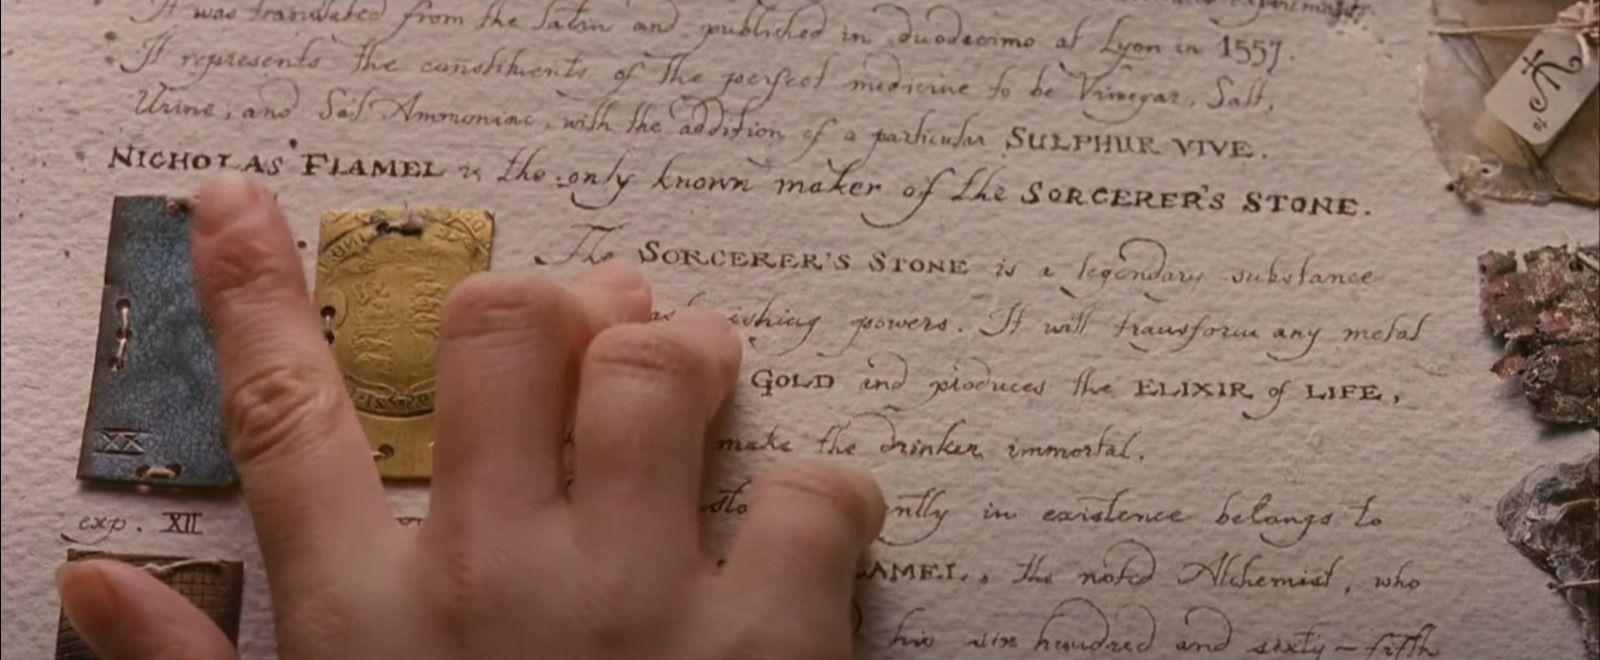 It was translated from the Latin and published in duodecimo at Lyon in 1557.
It represents the constituents of the perfect medicine to be Vinegar, Salt,
Urine, and Sal Ammoniac, with the addition of a particular SULPHUR VIVE.
NICHOLAS FLAMEL is the only known maker of the SORCERER'S STONE.
The SORCERER'S STONE is a legendary substance
powers. It will transform any metal
GOLD and produces the ELIXIR of LIFE,
make the drinker immortal.
in existence belongs to
the noted Alchemist, who
his six hundred and sixty-fifth
XX
exp. XII